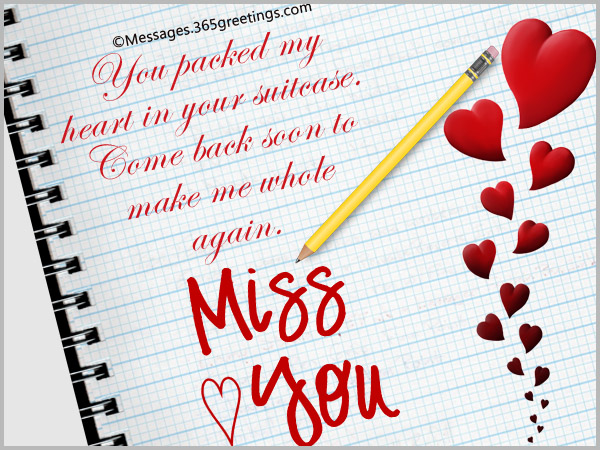 ©Messages.365greetings.com
You packed my
heart in your suitcase.
Come back soon to
make me whole
again.
Miss
You